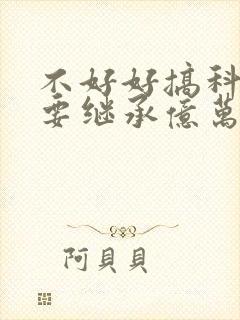 不好好搞科
要继承億萬
阿貝貝